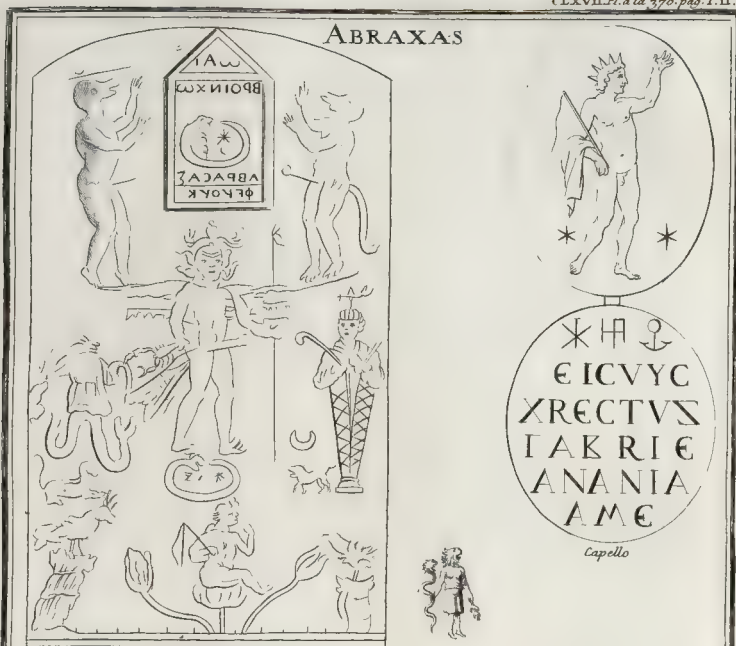 CLXVII. Pl. a la 370. pag. T. II.
ABRAXAS
ωΑΙ
ΒΡΟΙΝΧω
ΑΒΡΑCΑΖ
ΦΕΥΟΥΚ
ЄICVYC
XRЄCTVS
ΓAKRIЄ
ANANIA
AMЄ
Capello